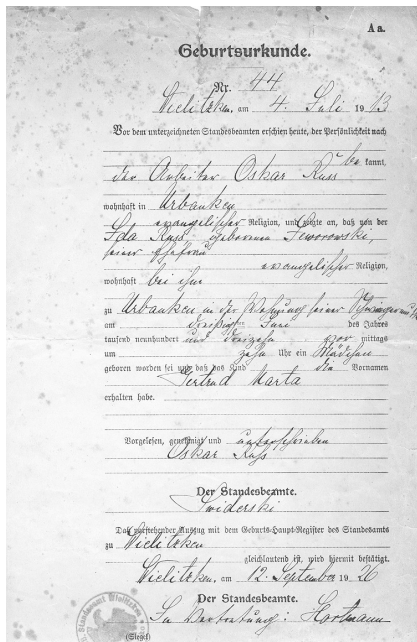 Aa.
Geburtsurkunde.
Nr. 44
Wielitzken, am 4. Juli 1913
Vor dem unterzeichneten Standesbeamten erschien heute, der Persönlichkeit nach
be kannt,
der Arbeiter Oskar Russ
wohnhaft in Urbanken
evangelischer Religion, und zeigte an, daß von der
Ida Russ geborenen Jeworowski,
seiner Ehefrau
evangelischer Religion,
wohnhaft bei ihm
zu Urbanken in der Wohnung seiner
am dreißigsten Juni des Jahres
tausend neunhundert und dreizehn vor mittags
um zehn Uhr ein Mädchen
geboren worden sei und daß das Kind die Vornamen
Gertrud Marta
erhalten habe.
Vorgelesen, genehmigt und unterschrieben
Oskar Russ
Der Standesbeamte.
Swiderski
Daß vorstehender Auszug mit dem Geburts-Haupt-Register des Standesamts
zu Wielitzken
gleichlautend ist, wird hiermit bestätigt.
Wielitzken, am 12. September 1926
Der Standesbeamte.
In Vertretung: Hartmann
(Siegel)